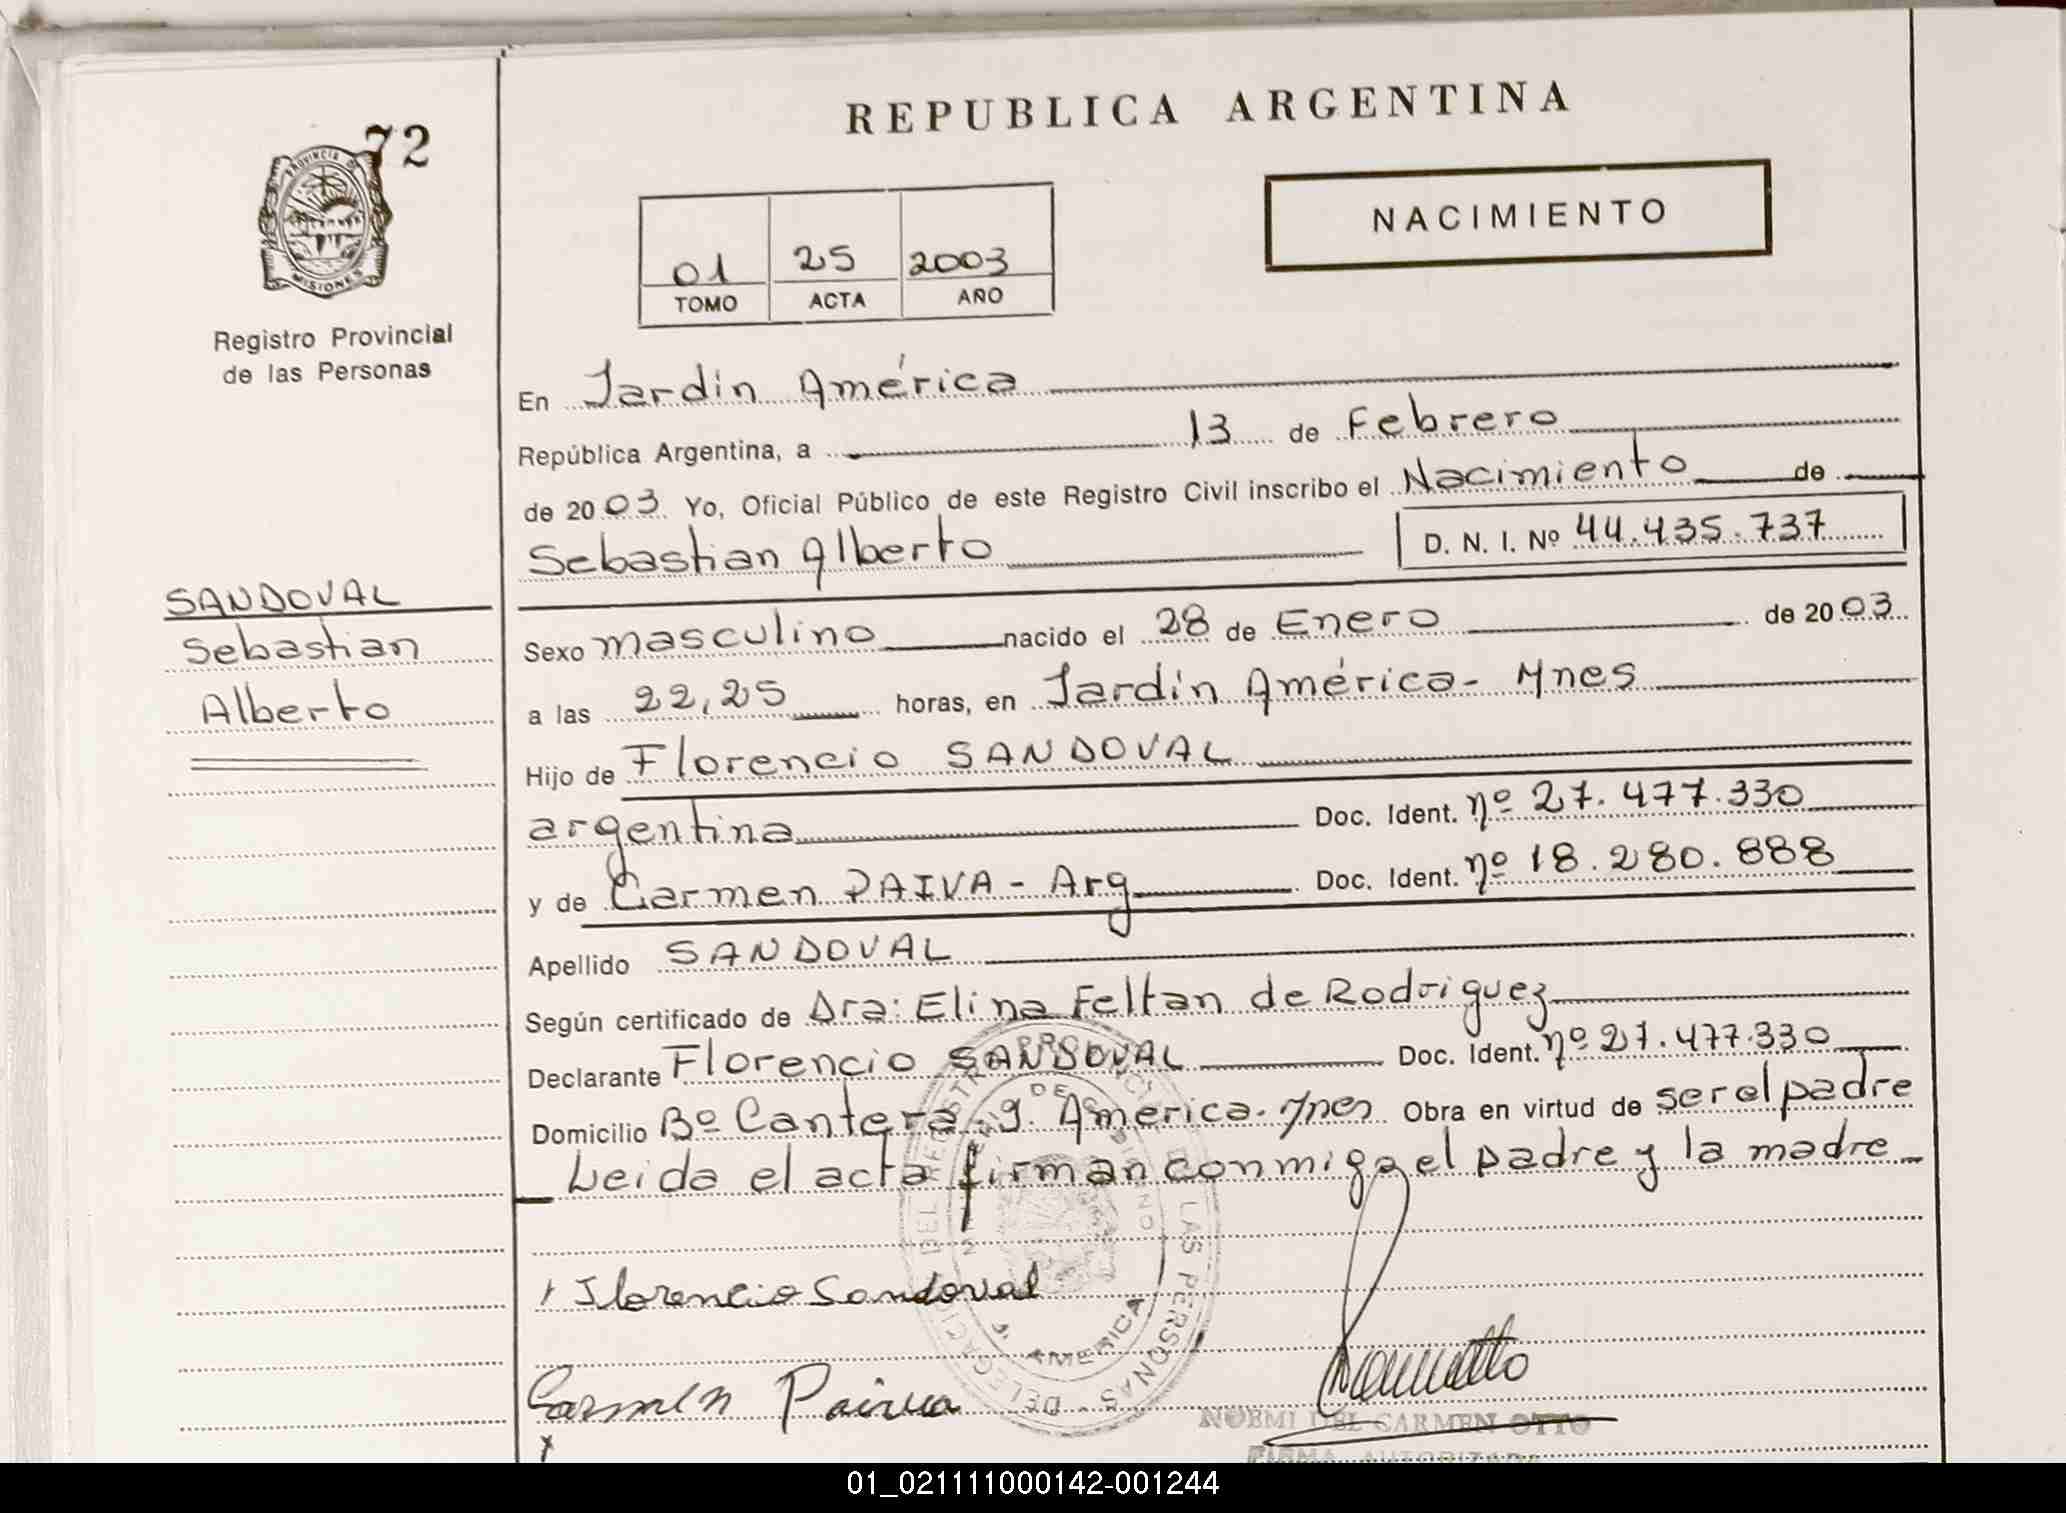 REPUBLICA ARGENTINA
72
PROVINCIA DE
MISIONES
Registro Provincial
de las Personas
NACIMIENTO
01 25 2003
TOMO ACTA AÑO
En Jardin América
República Argentina, a 13 de Febrero
de 2003 Yo, Oficial Público de este Registro Civil inscribo el Nacimiento de
Sebastian Alberto D. N. I. Nº 44.435.737
SANDOVAL
Sebastian
Alberto
Sexo masculino nacido el 28 de Enero de 2003
a las 22,25 horas, en Jardin América - Mnes
Hijo de Florencio SANDOVAL
argentina Doc. Ident. nº 27.477.330
y de Carmen PAIVA - Arg Doc. Ident. nº 18.280.888
Apellido SANDOVAL
Según certificado de Dra: Elina Feltan de Rodriguez
Declarante Florencio SANDOVAL Doc. Ident. nº 27.477.330
Domicilio Bº Cantera. J. America. Mnes Obra en virtud de ser el padre
Leida el acta firman conmigo el padre y la madre
Florencio Sandoval
Carmen Paiva
J. AMERICA
LAS PERSONAS - DELEGACI
NOEMI DEL CARMEN OTTO
FIRMA AUTORIZADA
01_021111000142-001244